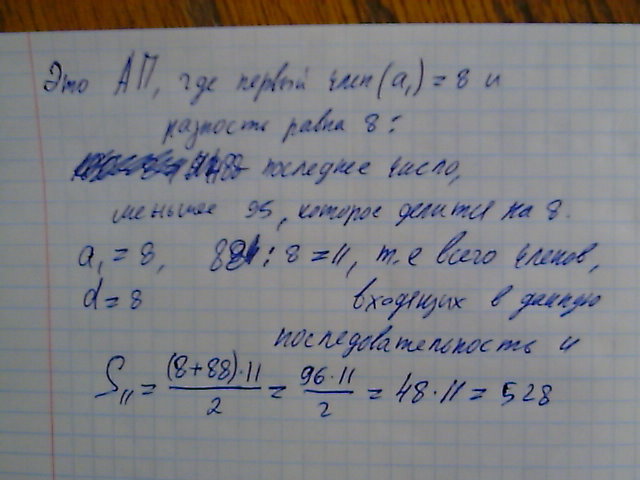 Это АП, где первый член (a₁) = 8 и
разность равна 8:
88 последнее число,
меньшее 95, которое делится на 8.
a₁ = 8, 88 : 8 = 11, т.е всего членов,
d = 8 входящих в данную
последовательность 11
S₁₁ = (8+88)·11/2 = 96·11/2 = 48·11 = 528